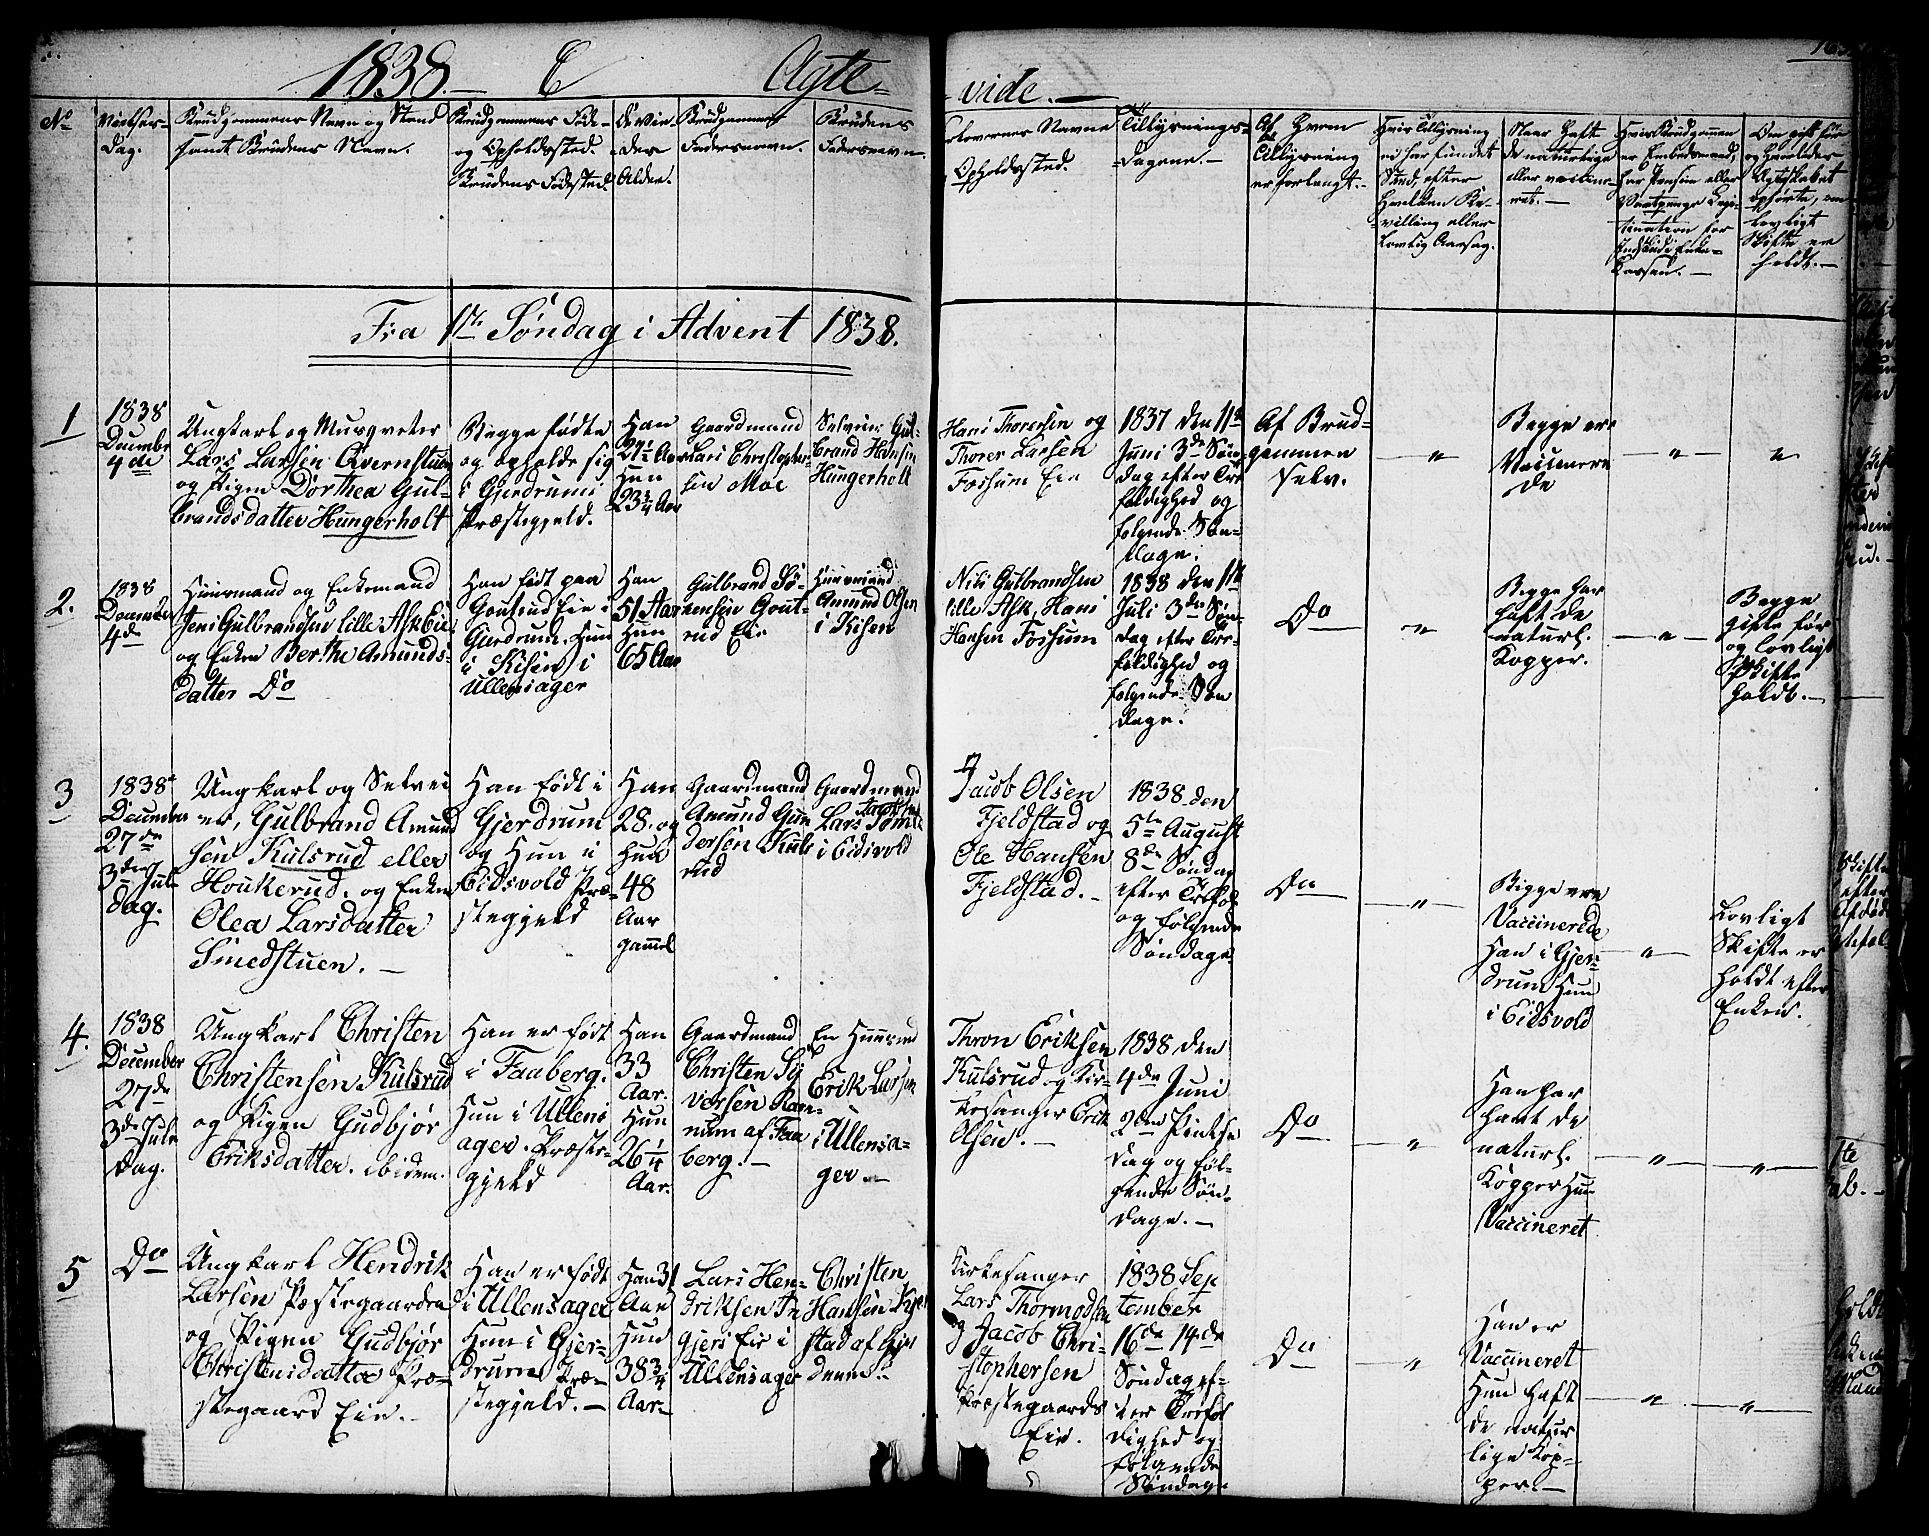 1838. C Ægte-vide.
No
Vielses-
Dag.
Brudgommens Navn og Stand
samt Brudens Navn.
Brudgommens Føde-
og Opholdssted.
Brudens Fødested.
De Vie-
des
Alder.
Brudgommens
Fadersnavn.
Brudens
Fadersnavn.
Forlovernes Navne
Opholdssted.
Tillysnings-
dagene.
Af Hvem
Tillysning
er forlangt.
Hvis Tillysning
ei har fundet
Sted, efter
Hvilken Be-
villing eller
Lovlig Aarsag.
Naar Havt
de naturlige
eller vaccine-
ret.
Hvis Brudgommen
er Embedsmand,
har Pension eller
Ventepenge Legi-
timation for
Indskud i Enke-
Kassen.
Om gift før
og Hvorledes
Ægteskabet
ophørte, om
Lovligt
Skifte er
holdt.
Fra 1te Søndag i Advent 1838.
1
1838
December
4de
Ungkarl og Musqveter
Lars Larsen Qvernstuen
og Pigen Dorthea Gul-
brandsdatter Hungerholt
Begge fødte
og opholde sig
i Gjerdrums
Præstegjeld.
Han
Hun
23 3/4 Aar
Gaardmand
Lars Christopher-
sen Moe
Selveier Gul-
brand Hansen
Hungerholt
Hans Thorersen og
Thorer Larsen
Fossum Eie
1837 den 11te
Juni 3de Søn-
dag efter Tre-
foldighed og
følgende Søn-
dage.
Af Brud-
gommen
selv.
"
Begge ere
Vaccinere-
de
"
"
2.
1838
December
4de
Huusmand og Enkemand
Jens Gulbrandsen lille Ask Eie
og Enken Berthe Amunds-
datter Do
Han født paa
Eie i
Gjerdrum. Hun
i Kisen i
Ullensager
Han
51 Aar
Hun
65 Aar
Gulbrand
Eie
Huusmand
Amund Olsen
i Kisen
Nils Gulbrandsen
lille Ask, Hans
Hansen Fossum
1838 den 11te
Juli 3de Søn-
dag efter Tre-
foldighed og
følgende Søn-
dage.
Do
"
Begge har
haft de
naturl.
Kopper.
"
Begge
gifte før
og lovligt
Skifte
holdt.
3
1838
December
27de
3die Jule-
dag.
Ungkarl og Selvei-
er, Gulbrand Amund-
sen Kulsrud eller
Houkerud. og Enken
Olea Larsdatter
Smedstuen.
Han født i
Gjerdrum
og Hun i
Eidsvold Præ-
stegjeld
Han
28. og
Hun
48
Aar
gammel
Gaardmand
Amund Gun-
dersen Kuls-
rud
Gaardmand
Lars
i Eidsvold
Jacob Olsen
Fjeldstad og
Ole Hansen
Fjeldstad.
1838 den
5te August
8de Søndag
efter Trefol-
og følgende
Søndage
Do
"
Begge ere
Vaccinerede
Han i Gjer-
drum Hun
i Eidsvold
"
Lovligt
Skifte er
holdt efter
Enken.
4.
1838
December
27de
3die Jule
dag.
Ungkarl Christen
Christensen Kulsrud
og Pigen Gudbjør
Eriksdatter. ibidem.
Han er født
i Faaberg.
Hun i Ullens-
ager. Præste-
gjeld
Han
33
Aar.
Hun
26 1/4
Aar.
Gaardmand
Christen Sy-
versen Ran-
num af Faa-
berg.
En Huusmd
Erik Larsen
i Ullensa-
ger.
Thron Eriksen
Kulsrud og Kir-
kesanger Erik
Olsen.
1838 den
4de Juni
2den Pintse
dag og føl-
gende Søn-
dage.
Do
"
Han har
havt de
naturl.
Kopper Hun
Vaccineret
"
"
5
Do
Ungkarl Hendrik
Larsen Præstegaarden
og Pigen Gudbjør
Christensdatter Præ-
stegaard Eie.
Han er født
i Ullensager
Hun i Gjer-
drum Præ-
stegjeld.
Han 31
Aar
Hun
38 3/4
Aar
Lars Hen-
driksen
Eie i
Ullensager
Christen
Hansen
Kirkesanger
Lars Thormodsen
og Jacob Chri-
stophersen
Præstegaards
Eie.
1838 Sep-
tember
16de 14de
Søndag ef-
ter Trefol-
dighed og
følgende
Søndage
Do
"
Han er
Vaccineret
Hun haft
de natur-
lige Kop-
per.
"
"